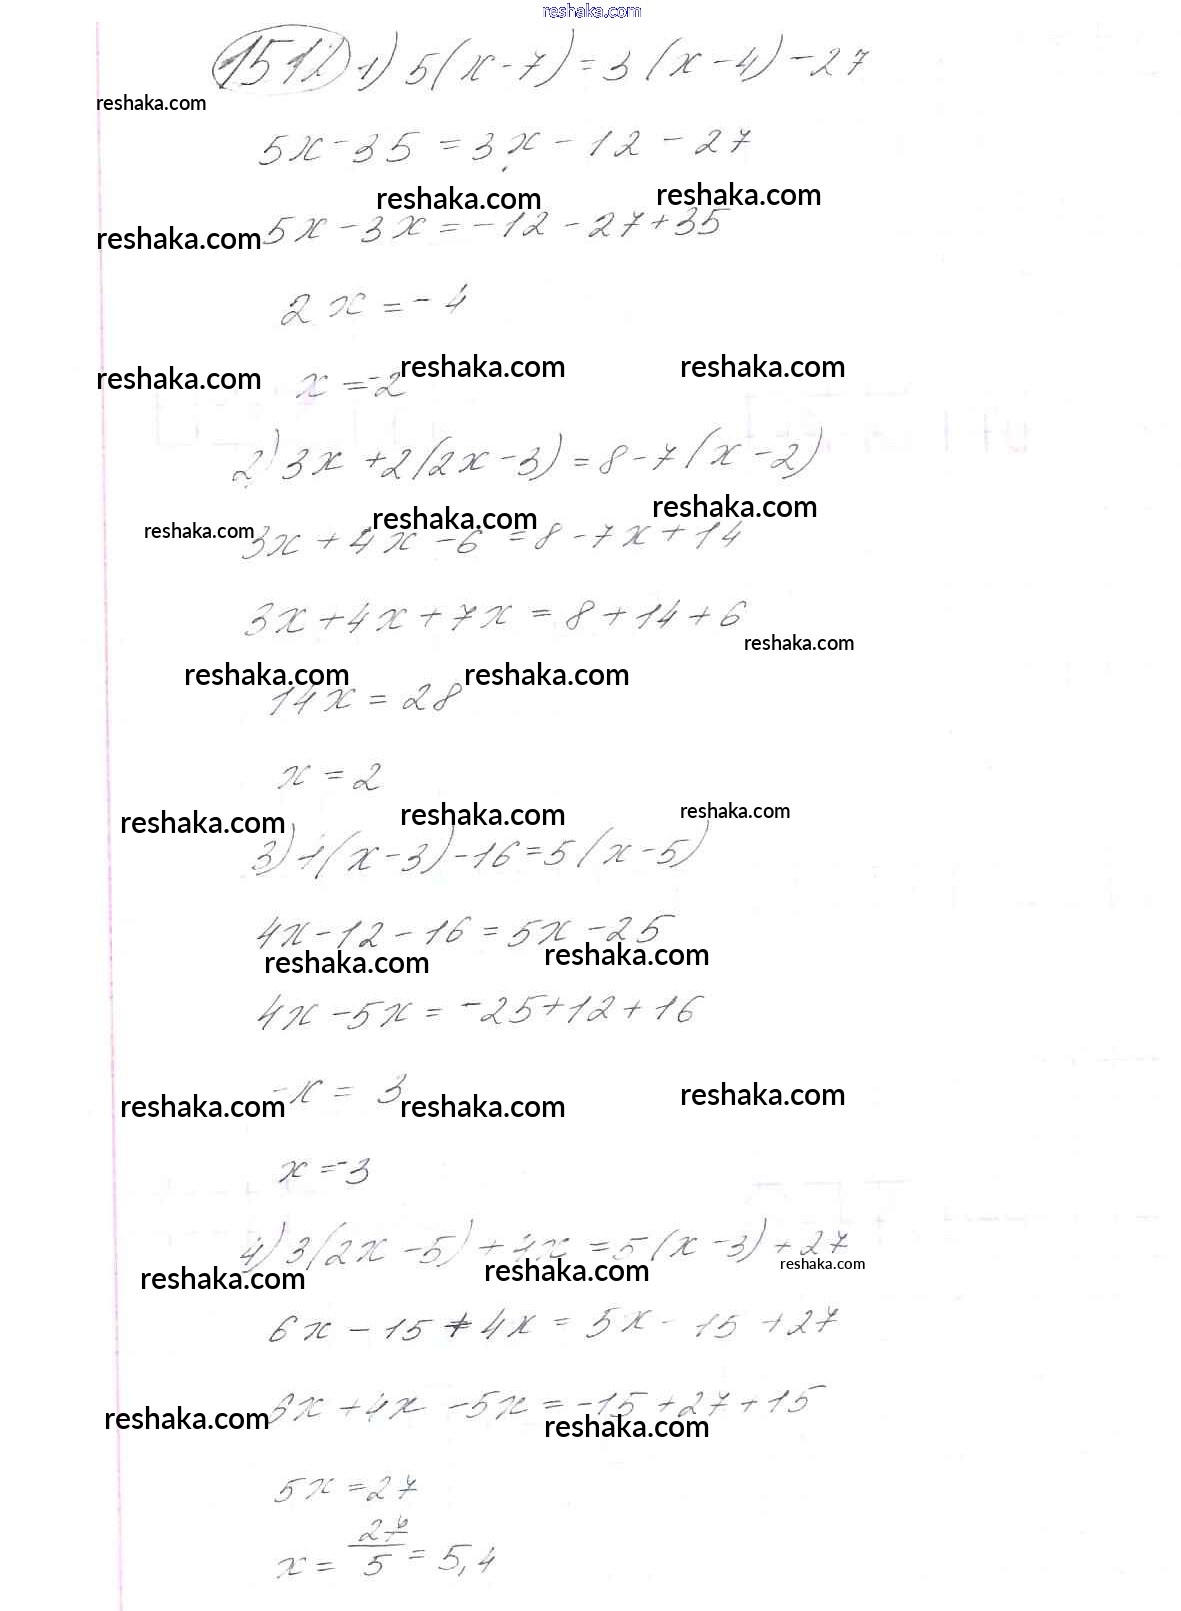 reshaka.com
1512 1) 5(x-7)=3(x-4)-27
reshaka.com
5x-35=3x-12-27
reshaka.com reshaka.com
reshaka.com 5x-3x=-12-27+35
2x=-4
reshaka.com x=-2 reshaka.com reshaka.com
2) 3x+2(2x-3)=8-7(x-2)
reshaka.com reshaka.com
reshaka.com 3x+4x-6=8-7x+14
3x+4x+7x=8+14+6
reshaka.com
reshaka.com reshaka.com
14x=28
x=2
reshaka.com reshaka.com reshaka.com
3) (x-3)-16=5(x-5)
4x-12-16=5x-25
reshaka.com reshaka.com
4x-5x=-25+12+16
-x=3
reshaka.com reshaka.com reshaka.com
x=-3
4) 3(2x-5)+4x=5(x-3)+27
reshaka.com reshaka.com reshaka.com
6x-15+4x=5x-15+27
6x+4x-5x=-15+27+15
reshaka.com reshaka.com
5x=27
x=27/5=5,4